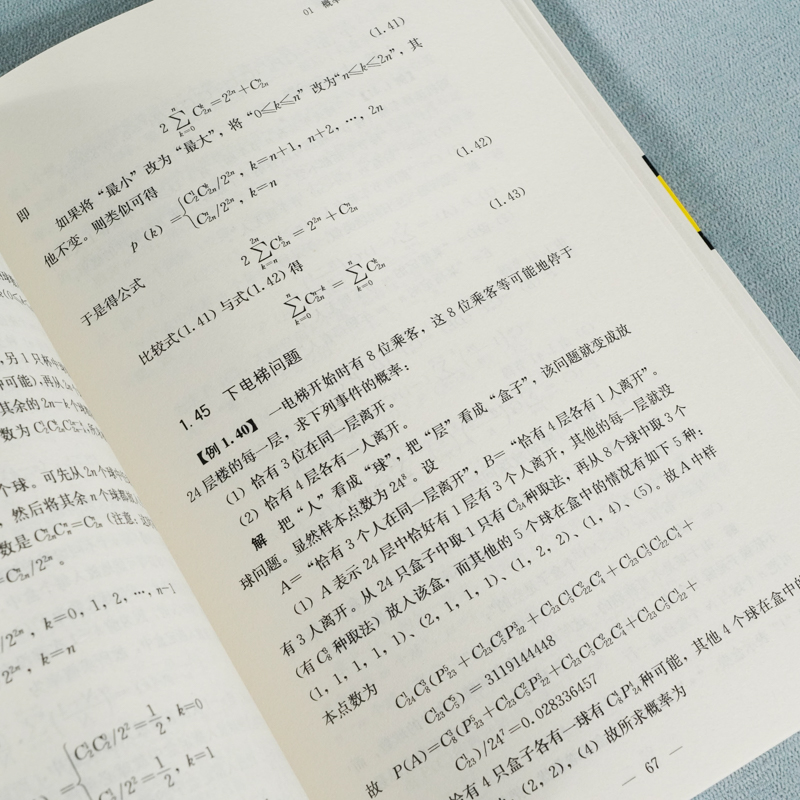 01 概率
(1.41)
2∑_{k=0}^{n}C_{2n}^{k}=2^{2n}+C_{2n}^{n}
即
如果将“最小”改为“最大”，将“0≤k≤n”改为“n≤k≤2n”，其
他不变。则类似可得
p(k)={C_{2}^{1}C_{2n}^{k}/2^{2n}，k=n+1，n+2，…，2n
C_{2n}^{n}/2^{2n}，k=n
(1.42)
于是得公式
2∑_{k=n}^{2n}C_{2n}^{k}=2^{2n}+C_{2n}^{n}
(1.43)
比较式(1.41)与式(1.42)得
∑_{k=0}^{n}C_{2n}^{n-k}=∑_{k=0}^{n}C_{2n}^{k}
1.45 下电梯问题
【例1.40】 一电梯开始时有8位乘客，这8位乘客等可能地停于
24层楼的每一层，求下列事件的概率：
(1) 恰有3位在同一层离开。
(2) 恰有4层各有一人离开。
解 把“人”看成“球”，把“层”看成“盒子”，该问题就变成放
球问题。显然样本点数为24^{8}。设
A=“恰有3个人在同一层离开”，B=“恰有4层各有1人离开”。
(1) A表示24层中恰好有1层有3个人离开，其他的每一层就没
有3人离开。从24只盒子中取1只有C_{24}^{1}种取法，再从8个球中取3个
(有C_{8}^{3}种取法)放入该盒，而其他的5个球在盒中的情况有如下5种：
(1, 1, 1, 1, 1)、(2, 1, 1, 1)、(1, 2, 2)、(1, 4)、(5)。故A中样
本点数为
C_{24}^{1}C_{8}^{3}(P_{23}^{5}+C_{23}^{1}C_{5}^{2}P_{22}^{3}+C_{23}^{1}C_{5}^{1}C_{22}^{2}C_{4}^{2}+C_{23}^{1}C_{5}^{1}C_{22}^{1}C_{4}^{4}+
C_{23}^{1}C_{5}^{5})=3119144448
故 P(A)=C_{8}^{3}(P_{23}^{5}+C_{23}^{1}C_{5}^{2}P_{22}^{3}+C_{23}^{1}C_{5}^{1}C_{22}^{2}C_{4}^{2}+C_{23}^{1}C_{5}^{1}C_{22}^{1}+
C_{23}^{1})/24^{7}=0.028336457
恰有4只盒子各有一球有C_{8}^{4}P_{24}^{4}种可能，其他4个球在盒中的
，(2, 2)，(4) 故所求概率为
— 67 —
，另1只杯
种可能)，再从2n
其余的2n-k个
数为
个球。可先从2n个球中
，然后将其余n个球都
数是C_{2n}^{n}C_{n}^{n}=C_{2n}^{n}(注意：
=C_{2n}^{n}/2^{2n}。
/2^{2n}，k=0，1，2，…，n-1
2^{2n}，k=n
={C_{2}^{1}C_{2}^{0}/2^{2}=1/2，k=0
/2^{2}=1/2，k=1